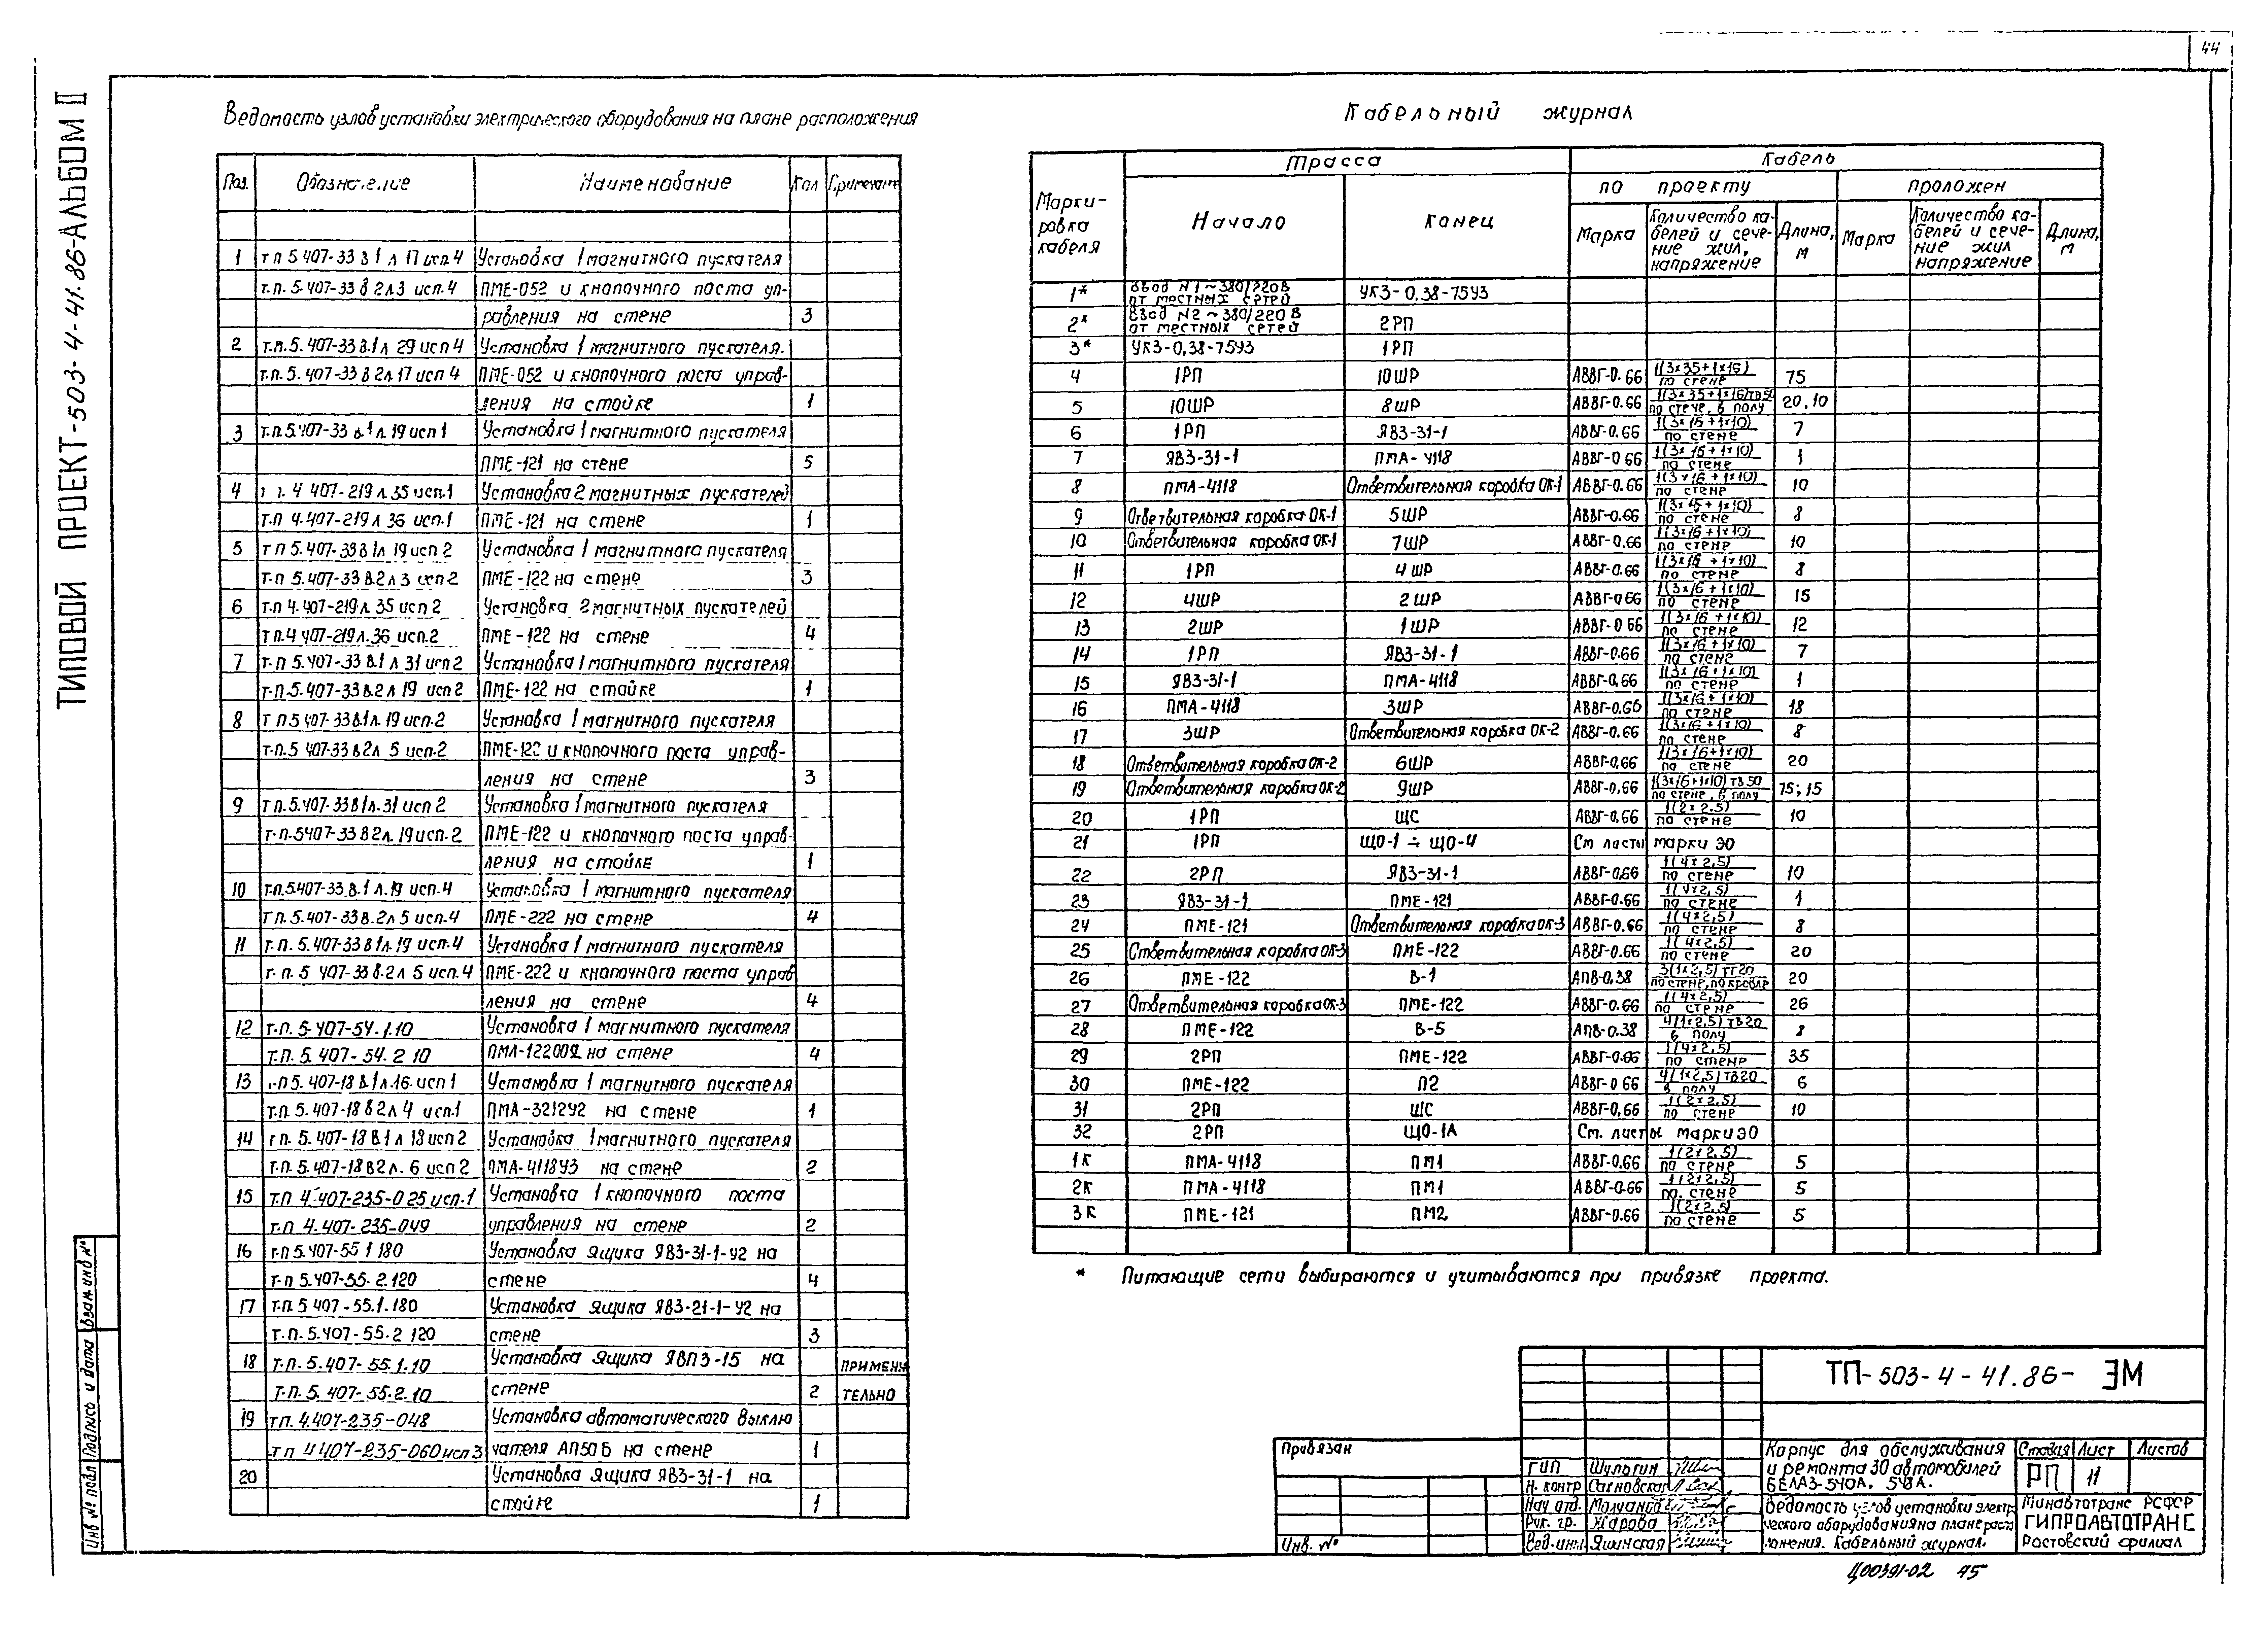 44
ТИПОВОЙ ПРОЕКТ-503-4-41.86-АЛЬБОМ II
Ведомость узлов установки электрического оборудования на плане расположения
Поз. Обозначение Наименование Кол Примечан
1 т п 5.407-33 в 1 л 17 исп.4 Установка 1 магнитного пускателя
т.п. 5.407-33 в 2 л 3 исп.4 ПМЕ-052 и кнопочного поста уп-
равления на стене 3
2 т.п. 5.407-33 в.1 л 29 исп 4 Установка 1 магнитного пускателя.
т.п. 5.407-33 в 2 л. 17 исп 4 ПМЕ-052 и кнопочного поста управ-
ления на стойке 1
3 т.п.5.407-33 в.1 л.19 исп 1 Установка 1 магнитного пускателя
ПМЕ-121 на стене 5
4 4 407-219 л 35 исп.1 Установка 2 магнитных пускателей
т.п 4.407-219 л 36 исп.1 ПМЕ-121 на стене 1
5 т п 5.407-33 в 1 л 19 исп 2 Установка 1 магнитного пускателя
т.п 5.407-33 в.2 л 3 исп 2 ПМЕ-122 на стене 3
6 т.п 4.407-219 л. 35 исп 2 Установка 2 магнитных пускателей
т п.4 407-219 л.36 исп.2 ПМЕ-122 на стене 4
7 т.п 5.407-33 в.1 л 31 исп 2 Установка 1 магнитного пускателя
т.п.5.407-33 в.2 л 19 исп 2 ПМЕ-122 на стойке 1
8 т п 5 407-33 в.1 л. 19 исп.2 Установка 1 магнитного пускателя
т.п.5 407-33 в 2 л 5 исп.2 ПМЕ-122 и кнопочного поста управ-
ления на стене 3
9 т п.5.407-33 в 1 л.31 исп 2 Установка 1 магнитного пускателя
т.п.5407-33 в 2 л. 19 исп.2 ПМЕ-122 и кнопочного поста управ-
ления на стойке 1
10 т.п.5.407-33.в.1 л.19 исп.4 Установка 1 магнитного пускателя
т п.5.407-33 в.2 л 5 исп.4 ПМЕ-222 на стене 4
11 т.п. 5.407-33 в 1 л.19 исп.4 Установка 1 магнитного пускателя
т.п. 5 407-33 в.2 л 5 исп.4 ПМЕ-222 и кнопочного поста управ
ления на стене 4
12 т.п. 5.407-54.1.10 Установка 1 магнитного пускателя
т.п. 5. 407-54.2 10 ПМЛ-122002 на стене 4
13 п 5.407-18 в.1 л.16. исп 1 Установка 1 магнитного пускателя
т.п. 5.407-18 в 2 л 4 исп.1 ПМА-3212У2 на стене 1
14 т п. 5.407-18 в.1 л 18 исп 2 Установка 1 магнитного пускателя
т.п. 5.407-18 в 2 л. 6 исп 2 ПМА-4118У3 на стене 2
15 т.п 4.407-235-0 25 исп.1 Установка 1 кнопочного поста
т.п 4.407-235-049 управления на стене 2
16 т.п 5.407-55 1 180 Установка ящика ЯВЗ-31-1-У2 на
т.п 5.407-55. 2.120 стене 4
17 т.п. 5 407-55.1.180 Установка ящика ЯВЗ-21-1-У2 на
т.п. 5.407-55.2 120 стене 3
18 т.п. 5.407-55.1.10 Установка ящика ЯВПЗ-15 на ПРИМЕНИ
т.п. 5. 407-55.2.10 стене 2 ТЕЛЬНО
19 тп. 4.407-235-048 Установка автоматического выклю
т п 4407-235-060 исп 3 чателя АП50Б на стене 1
20 Установка ящика ЯВЗ-31-1 на
стойке 1
Кабельный журнал
Марки-ровка кабеля Трасса Кабель
по проекту проложен
Начало Конец Марка Количество ка-белей и сече-ние жил, напряжение Длина, м Марка Количество ка-белей и сече-ние жил напряжение Длина, м
1* Ввод N1 ~380/220В от местных сетей УКЗ-0,38-75УЗ
2* Ввод N2 ~380/220 В от местных сетей 2РП
3* УКЗ-0,38-75УЗ 1РП
4 1РП 10ШР АВВГ-0.66 1(3×35+1×16) по стене 75
5 10ШР 8ШР АВВГ-0.66 1(3×35+1×16)ТВ50 по стене, в полу 20,10
6 1РП ЯВЗ-31-1 АВВГ-0.66 1(3×16+1×10) по стене 7
7 ЯВЗ-31-1 ПМА-4118 АВВГ-0 66 1(3×16+1×10) по стене 1
8 ПМА-4118 Ответвительная коробка ОК-1 АВВГ-0.66 1(3×16+1×10) по стене 10
9 Ответвительная коробка ОК-1 5ШР АВВГ-0.66 1(3×16+1×10) по стене 8
10 Ответвительная коробка ОК-1 7ШР АВВГ-0.66 1(3×16+1×10) по стене 10
11 1РП 4ШР АВВГ-0.66 1(3×16+1×10) по стене 8
12 4ШР 2ШР АВВГ-0 66 1(3×16+1×10) по стене 15
13 2ШР 1ШР АВВГ-0 66 1(3×16+1×10) по стене 12
14 1РП ЯВЗ-31-1 АВВГ-0.66 1(3×16+1×10) по стене 7
15 ЯВЗ-31-1 ПМА-4118 АВВГ-0,66 1(3×16+1×10) по стене 1
16 ПМА-4118 3ШР АВВГ-0.66 1(3×16+1×10) по стене 18
17 3ШР Ответвительная коробка ОК-2 АВВГ-0.66 1(3×16+1×10) по стене 8
18 Ответвительная коробка ОК-2 6ШР АВВГ-0,66 1(3×16+1×10) по стене 20
19 Ответвительная коробка ОК-2 9ШР АВВГ-0,66 1(3×16+1×10) ТВ 50 по стене, в полу 75;15
20 1РП ЩС АВВГ-0,66 1(2×2.5) по стене 10
21 1РП ЩО-1 ÷ ЩО-4 См листы марки ЭО
22 2РП ЯВЗ-31-1 АВВГ-0.66 1(4×2,5) по стене 10
23 ЯВЗ-31-1 ПМЕ-121 АВВГ-0.66 1(4×2,5) по стене 1
24 ПМЕ-121 Ответвительная коробка ОК-3 АВВГ-0.66 1(4×2,5) по стене 8
25 Ответвительная коробка ОК-3 ПМЕ-122 АВВГ-0.66 1(4×2,5) по стене 20
26 ПМЕ-122 В-1 АПВ-0,38 3(1×2,5) ТГ20 по стене, по кровле 20
27 Ответвительная коробка ОК-3 ПМЕ-122 АВВГ-0.66 1(4×2,5) по стене 26
28 ПМЕ-122 В-5 АПВ-0.38 4(1×2,5) ТВ20 в полу 8
29 2РП ПМЕ-122 АВВГ-0.66 1(4×2,5) по стене 35
30 ПМЕ-122 П2 АВВГ-0 66 4(1×2,5) ТВ20 в полу 6
31 2РП ЩС АВВГ-0,66 1(2×2,5) по стене 10
32 2РП ЩО-1А См. листы марки ЭО
1К ПМА-4118 ПМ1 АВВГ-0.66 1(2×2,5) по стене 5
2К ПМА-4118 ПМ1 АВВГ-0.66 1(2×2,5) по. стене 5
3К ПМЕ-121 ПМ2 АВВГ-0.66 1(2×2,5) по стене 5
* Питающие сети выбираются и учитываются при привязке проекта.
ТП-503-4-41.86- ЭМ
Привязан
Инв. №
ГИП Шульгин
Н. контр Сахновская
Нач отд. Молчанов
Рук. гр. Жарова
Вед.инж Яшинская
Корпус для обслуживания
и ремонта 30 автомобилей
БЕЛАЗ-540А, 548А.
Стадия Лист Листов
РП 11
Ведомость узлов установки электри
ческого оборудования на плане распо
ложения. Кабельный журнал.
Минавтотранс РСФСР
ГИПРОАВТОТРАНС
Ростовский филиал
Инв № подл Подпись и дата Взам.инв №
Ц00391-02 45